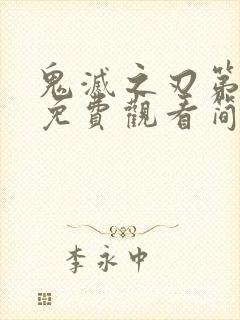 鬼滅之刃第
免費觀看簡
李永中